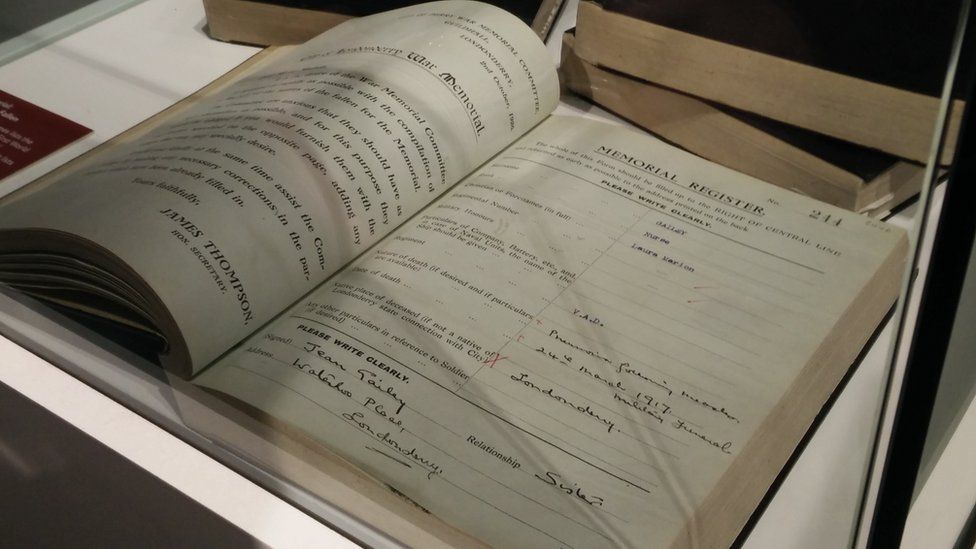 DERRY WAR MEMORIAL COMMITTEE,
GUILDHALL,
LONDONDERRY,
2nd October,
War Memorial.
of the War Memorial
as possible with the compilation of
of the fallen for the Memorial.
anxious that they should have as
possible, and for this purpose they
if you would furnish them with the
on the opposite page, adding any
specially desire.
at the same time assist the Com-
necessary corrections in the par-
been already filled in.
Yours faithfully,
JAMES THOMPSON,
HON. SECRETARY.
MEMORIAL REGISTER.
No. 244
The whole of this Form should be filled up to the RIGHT OF CENTRAL LINE
and returned as early as possible to the address entered on the back
PLEASE WRITE CLEARLY.
Surname ... GAILEY
Rank ... Nurse
Christian or Forenames (in full) Laura Marion
Regimental Number ...
Military Honours ...
Particulars of Company, Battery, etc., and
in case of Naval Units, the name of the
Ship should be given V.A.D.
Regiment
Nature of death (if desired and if particulars
are available) Pneumonia following Measles.
Date of death ... 24th March 1917. Military Funeral
Native place of deceased (if not a native of
Londonderry state connection with City) Londonderry.
Any other particulars in reference to Soldier
(if desired) ...
PLEASE WRITE CLEARLY.
(Signed) Jean Gailey Relationship Sister.
Address Waterloo Place,
Londonderry.